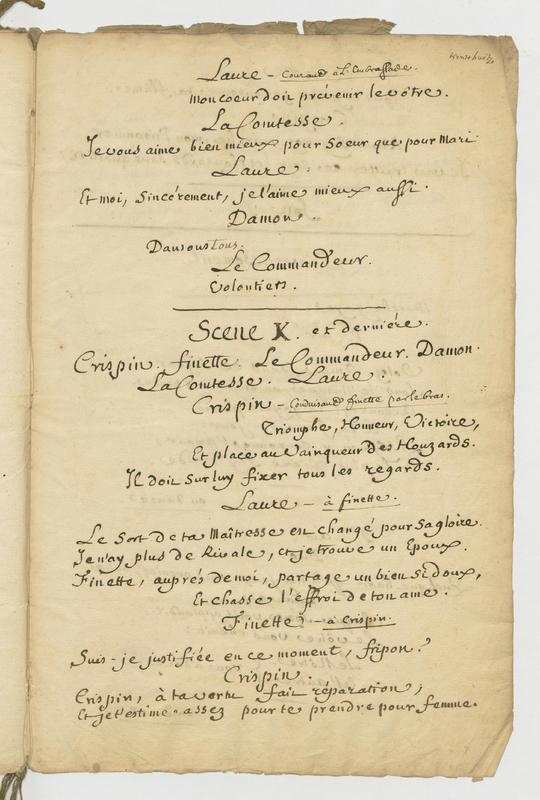 trente huit
Laure – Courand à l'Embrassade.
Mon Coeur doit prévenir le vôtre.
La Comtesse.
Je vous aime bien mieux pour Soeur que pour Mari
Laure.
Et moi, Sincérement, je l'aime mieux aussi.
Damon.
Dansons tous.
Le Commandeur.
Volontiers.
Scene X. et derniére.
Crispin. finette. Le Commandeur. Damon.
La Comtesse. Laure.
Crispin – Conduisand finette par le bras.
Triomphe, Honneur, Victoire,
Et place au Vainqueur des Houzards.
Il doit Sur luy fixer tous les regards.
Laure – à finette.
Le Sort de ta Maîtresse est changé pour Sa gloire.
Je n'ay plus de Rivale, et je trouve un Epoux.
Finette, auprés de moi, partage un bien Si doux,
Et chasse l'effroi de ton ame.
Finette – à Crispin.
Suis-je justifiée en ce moment, fripon?
Crispin.
Crispin, à ta vertu fait réparation;
Et je t'estime assez pour te prendre pour femme.